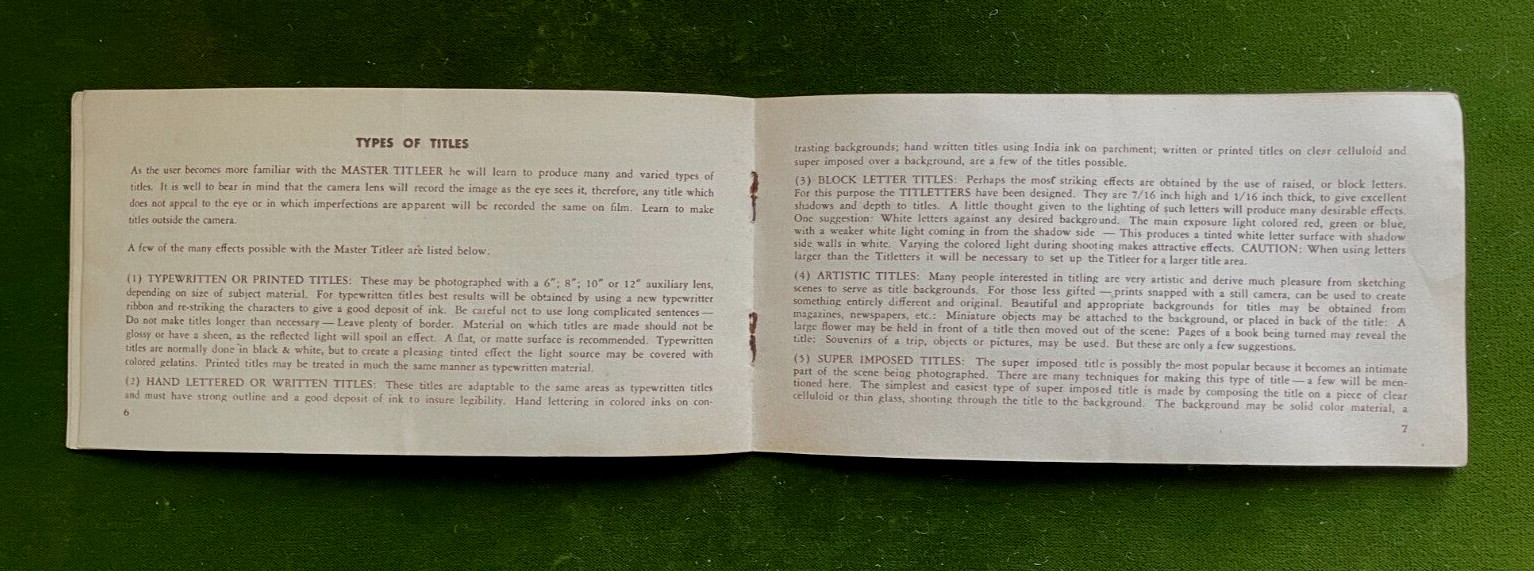 TYPES OF TITLES
As the user becomes more familiar with the MASTER TITLEER he will learn to produce many and varied types of
titles. It is well to bear in mind that the camera lens will record the image as the eye sees it, therefore, any title which
does not appeal to the eye or in which imperfections are apparent will be recorded the same on film. Learn to make
titles outside the camera.
A few of the many effects possible with the Master Titleer are listed below:
(1) TYPEWRITTEN OR PRINTED TITLES: These may be photographed with a 6"; 8"; 10" or 12" auxiliary lens,
depending on size of subject material. For typewritten titles best results will be obtained by using a new typewriter
ribbon and re-striking the characters to give a good deposit of ink. Be careful not to use long complicated sentences—
Do not make titles longer than necessary—Leave plenty of border. Material on which titles are made should not be
glossy or have a sheen, as the reflected light will spoil an effect. A flat, or matte surface is recommended. Typewritten
titles are normally done in black & white, but to create a pleasing tinted effect the light source may be covered with
colored gelatins. Printed titles may be treated in much the same manner as typewritten material.
(2) HAND LETTERED OR WRITTEN TITLES: These titles are adaptable to the same areas as typewritten titles
and must have strong outline and a good deposit of ink to insure legibility. Hand lettering in colored inks on con-
6
trasting backgrounds; hand written titles using India ink on parchment; written or printed titles on clear celluloid and
super imposed over a background, are a few of the titles possible.
(3) BLOCK LETTER TITLES: Perhaps the most striking effects are obtained by the use of raised, or block letters.
For this purpose the TITLETTERS have been designed. They are 7/16 inch high and 1/16 inch thick, to give excellent
shadows and depth to titles. A little thought given to the lighting of such letters will produce many desirable effects.
One suggestion: White letters against any desired background. The main exposure light colored red, green or blue,
with a weaker white light coming in from the shadow side — This produces a tinted white letter surface with shadow
side walls in white. Varying the colored light during shooting makes attractive effects. CAUTION: When using letters
larger than the Titletters it will be necessary to set up the Titleer for a larger title area.
(4) ARTISTIC TITLES: Many people interested in titling are very artistic and derive much pleasure from sketching
scenes to serve as title backgrounds. For those less gifted—prints snapped with a still camera, can be used to create
something entirely different and original. Beautiful and appropriate backgrounds for titles may be obtained from
magazines, newspapers, etc.: Miniature objects may be attached to the background, or placed in back of the title: A
large flower may be held in front of a title then moved out of the scene: Pages of a book being turned may reveal the
title: Souvenirs of a trip, objects or pictures, may be used. But these are only a few suggestions.
(5) SUPER IMPOSED TITLES: The super imposed title is possibly the most popular because it becomes an intimate
part of the scene being photographed. There are many techniques for making this type of title—a few will be men-
tioned here. The simplest and easiest type of super imposed title is made by composing the title on a piece of clear
celluloid or thin glass, shooting through the title to the background. The background may be solid color material, a
7